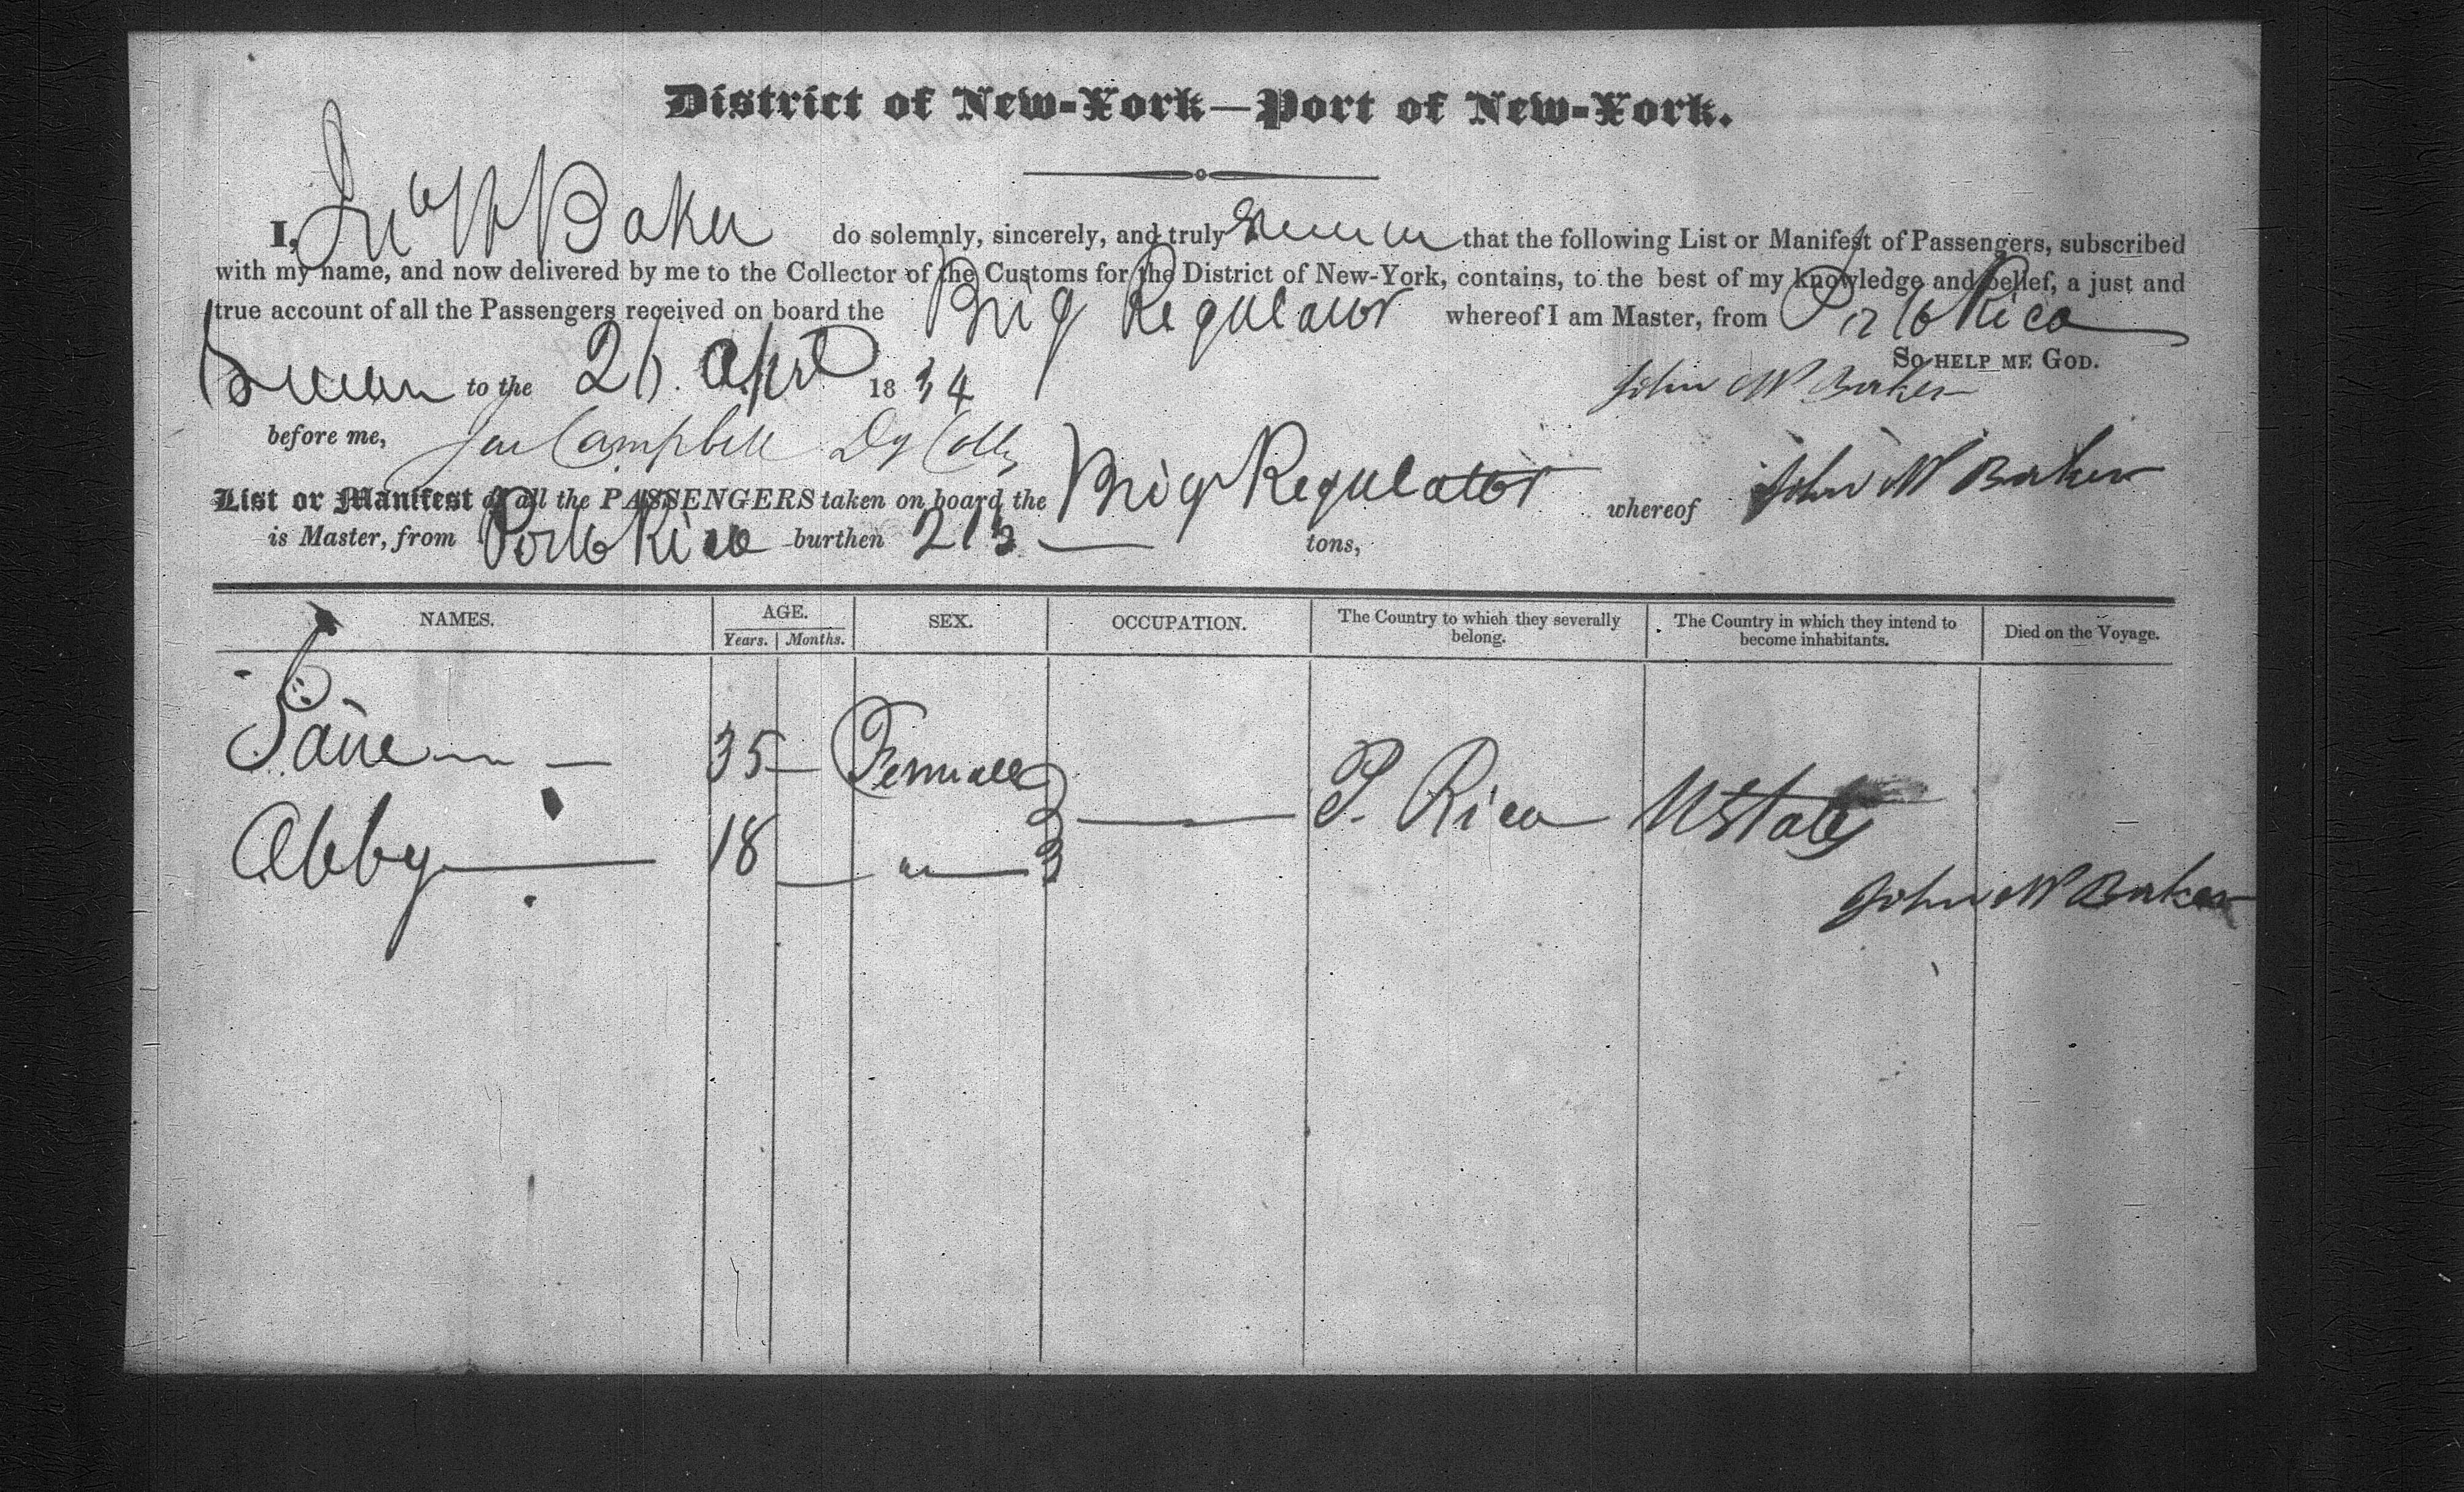 District of New-York—Port of New-York.
I, Jno W Baker do solemnly, sincerely, and truly Swear that the following List or Manifest of Passengers, subscribed
with my name, and now delivered by me to the Collector of the Customs for the District of New-York, contains, to the best of my knowledge and belief, a just and
true account of all the Passengers received on board the Brig Regulator whereof I am Master, from Porto Rico
So help me God.
Sworn to the 26 April 1834 John W Baker
before me, Campbell Dy Coll
List or Manifest of all the PASSENGERS taken on board the Brig Regulator whereof John W Baker
is Master, from Porto Rico burthen 213 tons,
NAMES. AGE. SEX. OCCUPATION. The Country to which they severally belong. The Country in which they intend to become inhabitants. Died on the Voyage.
Years. Months.
Jane 35 — Female
— P. Rico U States
Abby 18 — "
John W Baker